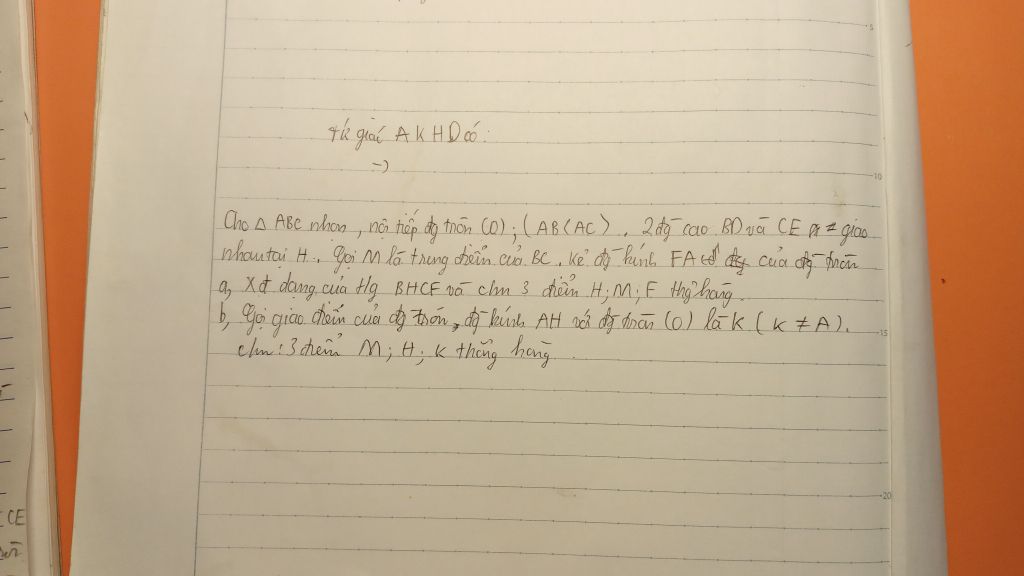 tứ giác AKHD có:
→
Cho △ ABC nhọn, nội tiếp đg tròn (O); (AB<AC). 2 đg cao BD và CE giao
nhau tại H. Gọi M là trung điểm của BC. kẻ đg kính FA của đg tròn
a, Xđ dạng của Hg BHCF và chm 3 điểm H; M; F thg hàng.
b, Gọi giao điểm của đg tròn, đg kính AH với đg tròn (O) là K (K ≠ A).
chm: 3 điểm M; H; K thẳng hàng
5
10
15
20
CE